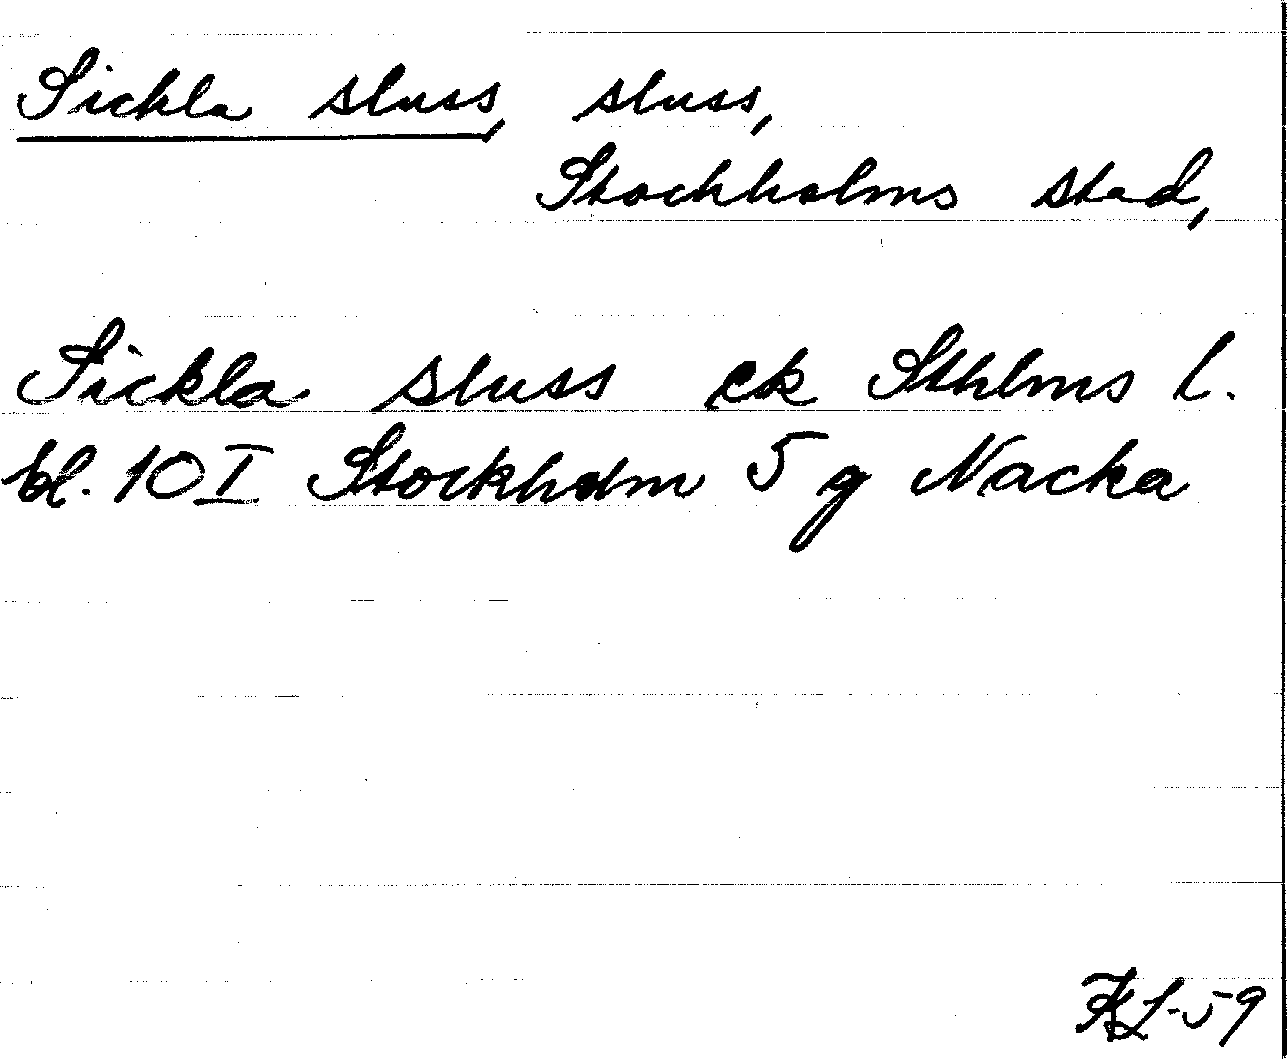 Sickla sluss, sluss,
Stockholms stad,
Sickla sluss ek Sthlms l.
bl. 10 I Stockholm 5 g Nacka
KL-59